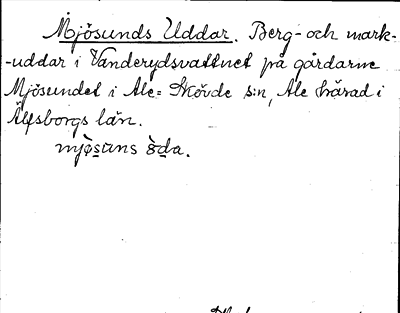 Mjösunds Uddar. Berg- och mark-
-uddar i Vanderydsvattnet på gårdarne
Mjösundet i Ale-Skövde s:n, Ale härad i
Älfsborgs län.
mjø̀suns ùda.